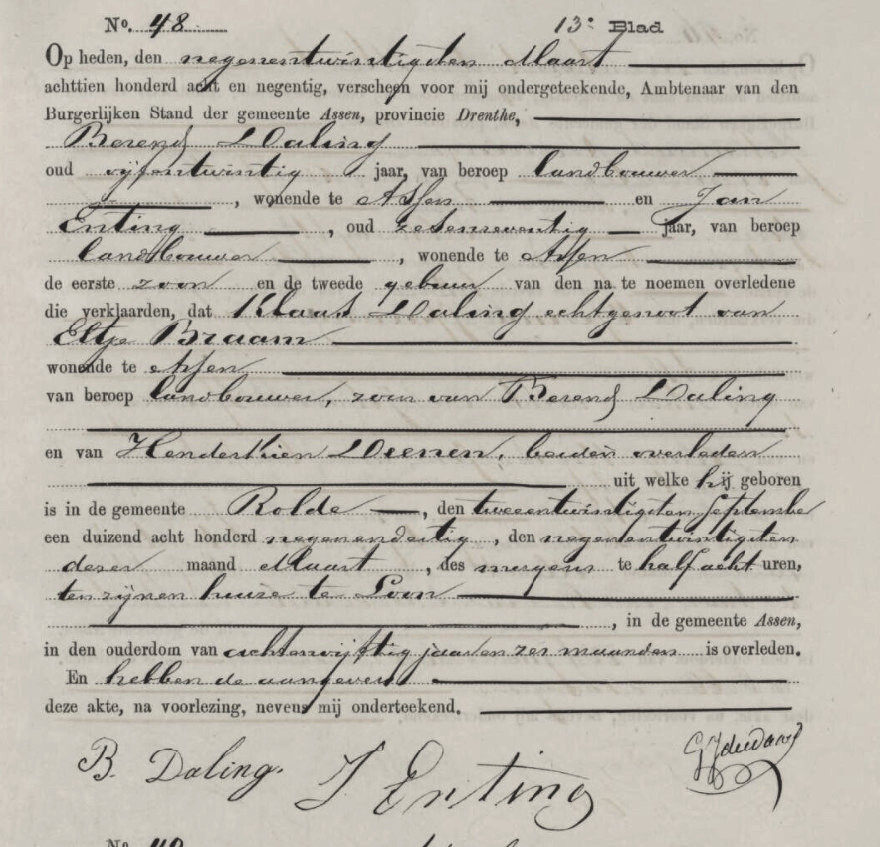 No. 48 13e Blad
Op heden, den negenentwintigsten Maart
achttien honderd acht en negentig, verscheen voor mij ondergeteekende, Ambtenaar van den
Burgerlijken Stand der gemeente Assen, provincie Drenthe,
Berend Daling
oud vijfentwintig jaar, van beroep landbouwer
, wonende te Assen en Jan
Enting , oud zesenzeventig jaar, van beroep
landbouwer , wonende te Assen
de eerste zoon en de tweede gebuur van den na te noemen overledene
die verklaarden, dat Klaas Daling echtgenoot van
Eltje Braam
wonende te Assen
van beroep landbouwer, zoon van Berend Daling
en van Henderkien Deenen, beiden overleden
uit welke hij geboren
is in de gemeente Rolde , den tweeentwintigsten September
een duizend acht honderd negenendertig , den negenentwintigsten
dezer maand Maart , des morgens te half acht uren,
ten zijnen huize te Loon
, in de gemeente Assen,
in den ouderdom van achtenvijftig jaar en zes maanden is overleden.
En hebben de aangevers
deze akte, na voorlezing, nevens mij onderteekend.
B. Daling. J Enting
No. 49